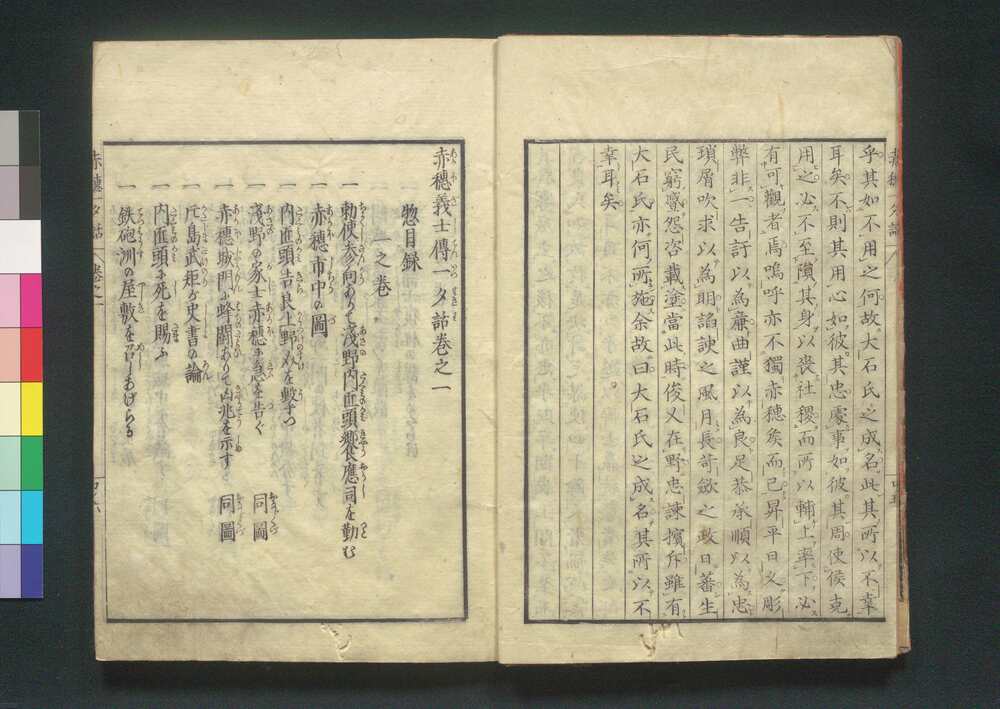 乎其如不用之何故大石氏之成名此其所以不幸
耳矣不則其用心如彼其忠慮事如彼其周使侯克
用之必不至隕其身以喪社稷而所以輔上率下必
有可觀者焉嗚呼亦不獨赤穗矣而已昇平日久彫
弊非一告訐以為廉曲謹以為良足恭承順以為忠
瑣屑吹求以為明諂諛之風月長苛斂之政日蕃生
民窮蹙怨咨載塗當此時俊乂在野忠諫擯斥雖有
大石氏亦何所施余故曰大石氏之成名其所以不
幸耳矣
赤穗義士傳一夕話卷之一
惣目録
一之卷
一 勅使参向ありて浅野内匠頭饗應司を勤む
一 赤穗市中の圖
一 内匠頭吉良上野介を撃つ
一 淺野の家士赤穗に急を告ぐ 同圖
一 赤穗城門に蜂闘ありて凶兆を示す 同圖
一 片島武矩が史書の論
一 内匠頭に死を賜ふ
一 鉄砲洲の屋敷をめしあげらる
赤穗一夕話 卷之一